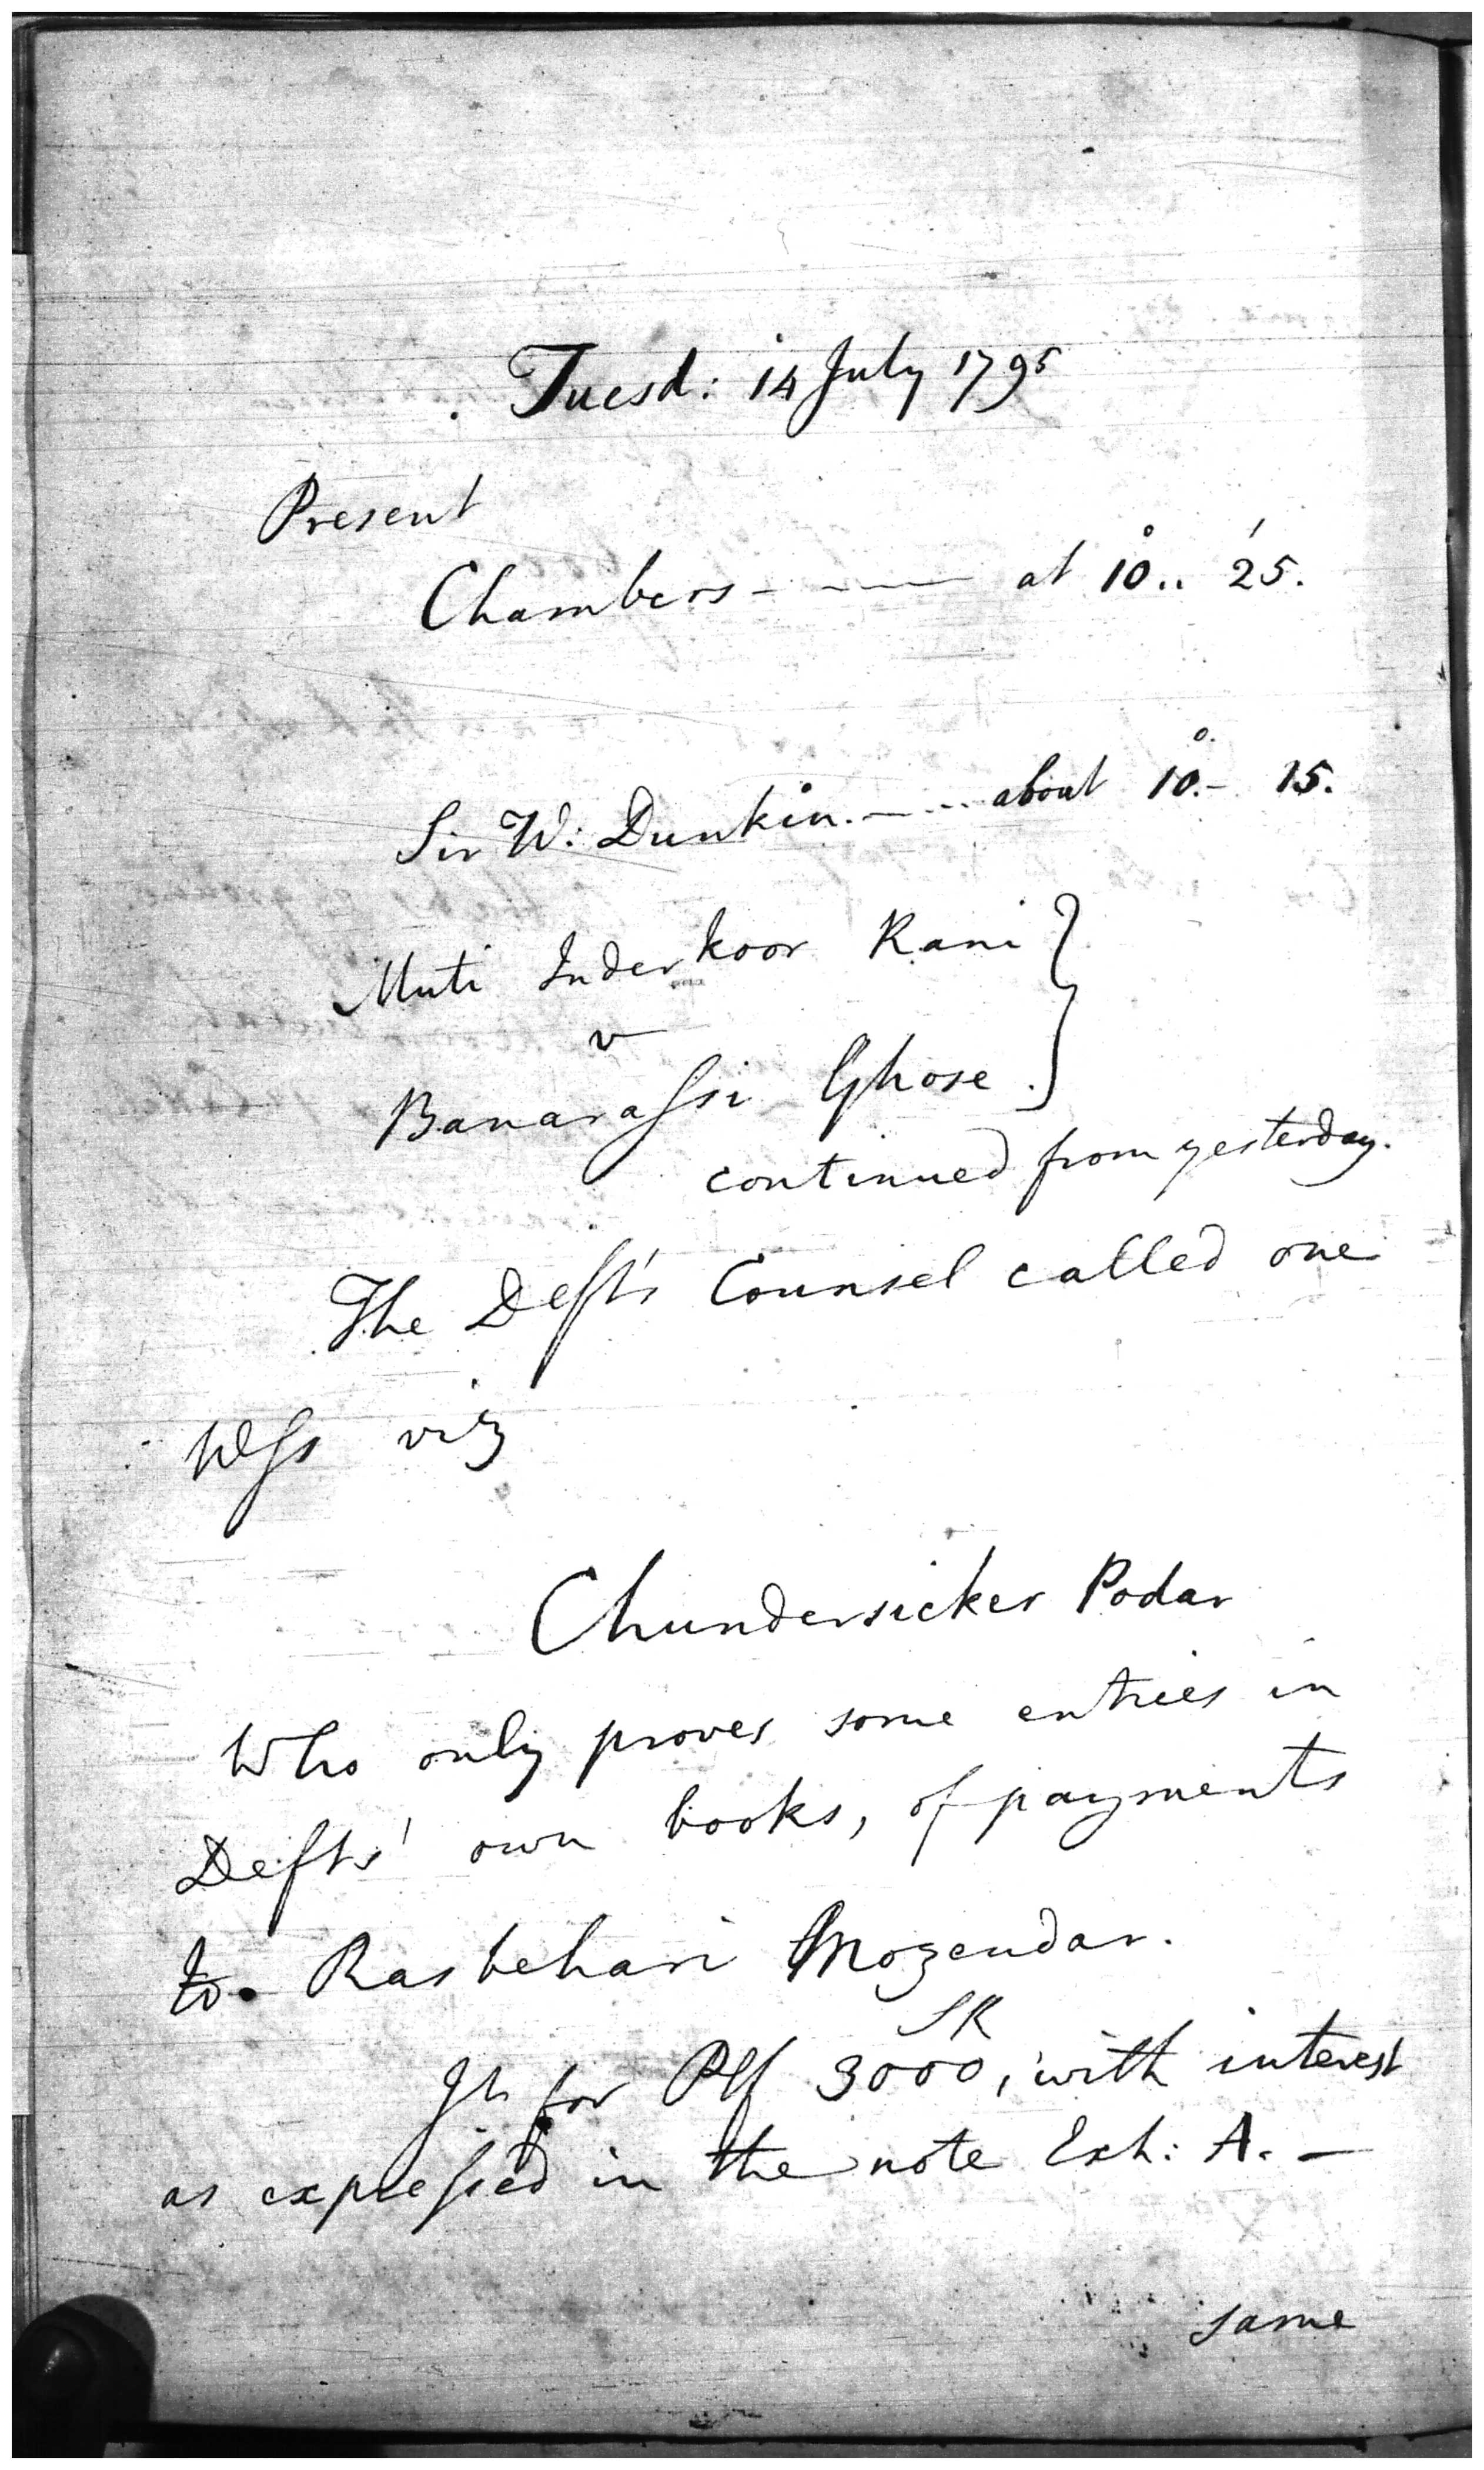 Tuesd: 14 July 1795
Present
Chambers - —— at 10°.. 25'.
Sir W: Dunkin. — - ... about 10°.- 15.
Muti Inderkoor Rani }
v
Banarassi Ghose . }
continued from yesterday.
The Deft's Counsel called one
Wss viz
Chundersicker Podar
Who only proves some entries in
Defts' own books, of payments
to Rasbehari Mozendar.
SR
Jt for Plf 3000, with interest
as expressed in the note Exh: A. —
same